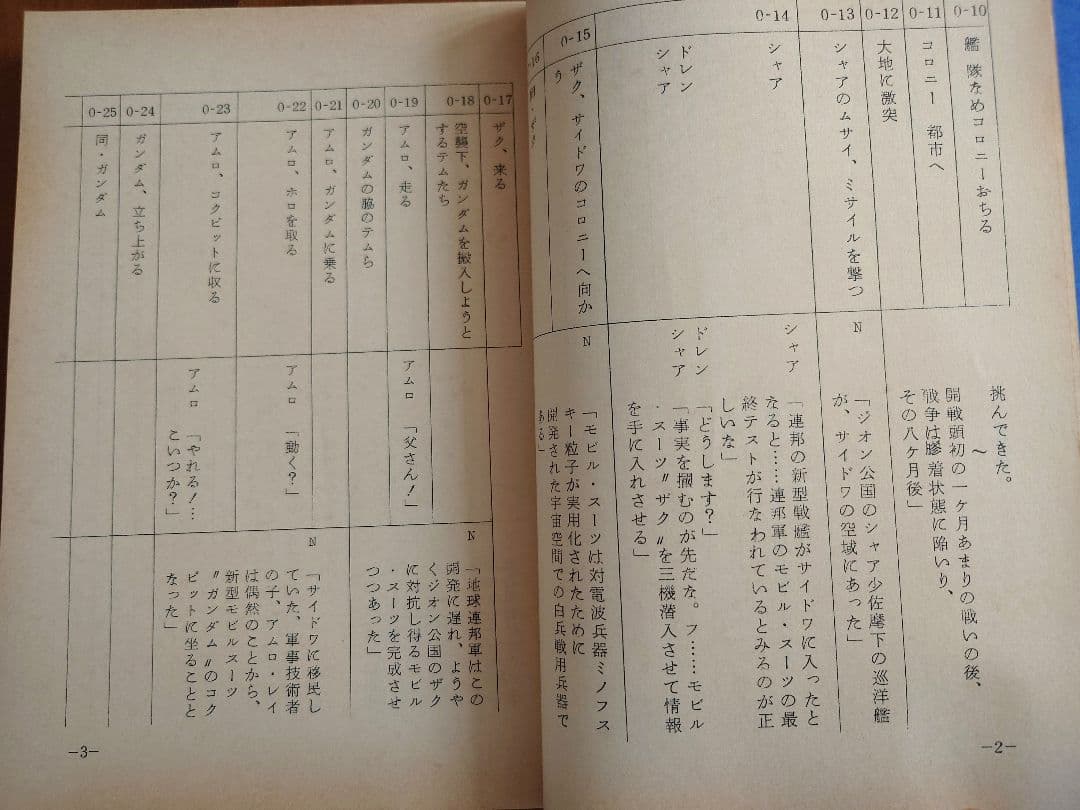 0-10
艦隊なめコロニーおちる
0-11
コロニー 都市へ
0-12
大地に激突
0-13
シャアのムサイ、ミサイルを撃つ
0-14
シャア
ドレン
シャア
0-15
ザク、サイドワのコロニーへ向か
う
挑んできた。
〜
開戦頭初の一ケ月あまりの戦いの後、
戦争は膠着状態に陥いり、
その八ケ月後」
N
「ジオン公国のシャア少佐麾下の巡洋艦
が、サイドワの空域にあった」
シャア
「連邦の新型戦艦がサイドワに入ったと
なると……連邦軍のモビル・スーツの最
終テストが行なわれているとみるのが正
しいな」
ドレン
「どうします?」
シャア
「事実を掴むのが先だな。フ……モビル
・スーツ〃ザク〃を三機潜入させて情報
を手に入れさせる」
N
「モビル・スーツは対電波兵器ミノフス
キー粒子が実用化されたために
開発された宇宙空間での白兵戦用兵器で
ある」
-2-
0-17
ザク、来る
0-18
空襲下、ガンダムを搬入しようと
するテムたち
0-19
アムロ、走る
0-20
ガンダムの脇のテムら
0-21
アムロ、ガンダムに乗る
0-22
アムロ、ホロを取る
0-23
アムロ、コクピットに収る
0-24
ガンダム、立ち上がる
0-25
同・ガンダム
アムロ 「父さん!」
アムロ 「動く?」
アムロ 「やれる!…
こいつか?」
N
「地球連邦軍はこの
開発に遅れ、ようや
くジオン公国のザク
に対抗し得るモビル
・スーツを完成させ
つつあった」
N
「サイドワに移民し
ていた、軍事技術者
の子、アムロ・レイ
は偶然のことから、
新型モビルスーツ
〃ガンダム〃のコク
ピットに坐ることと
なった」
-3-